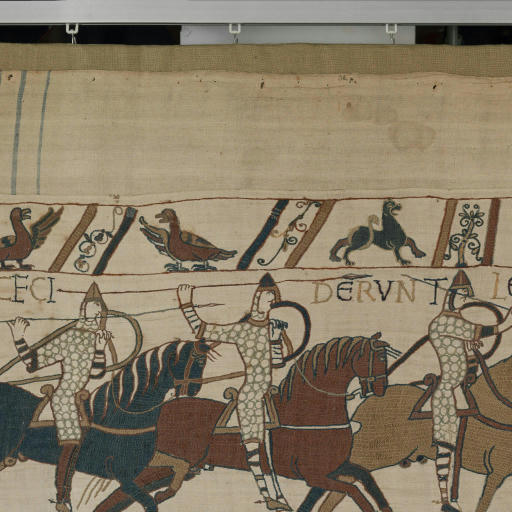 CECI DERVNT LE